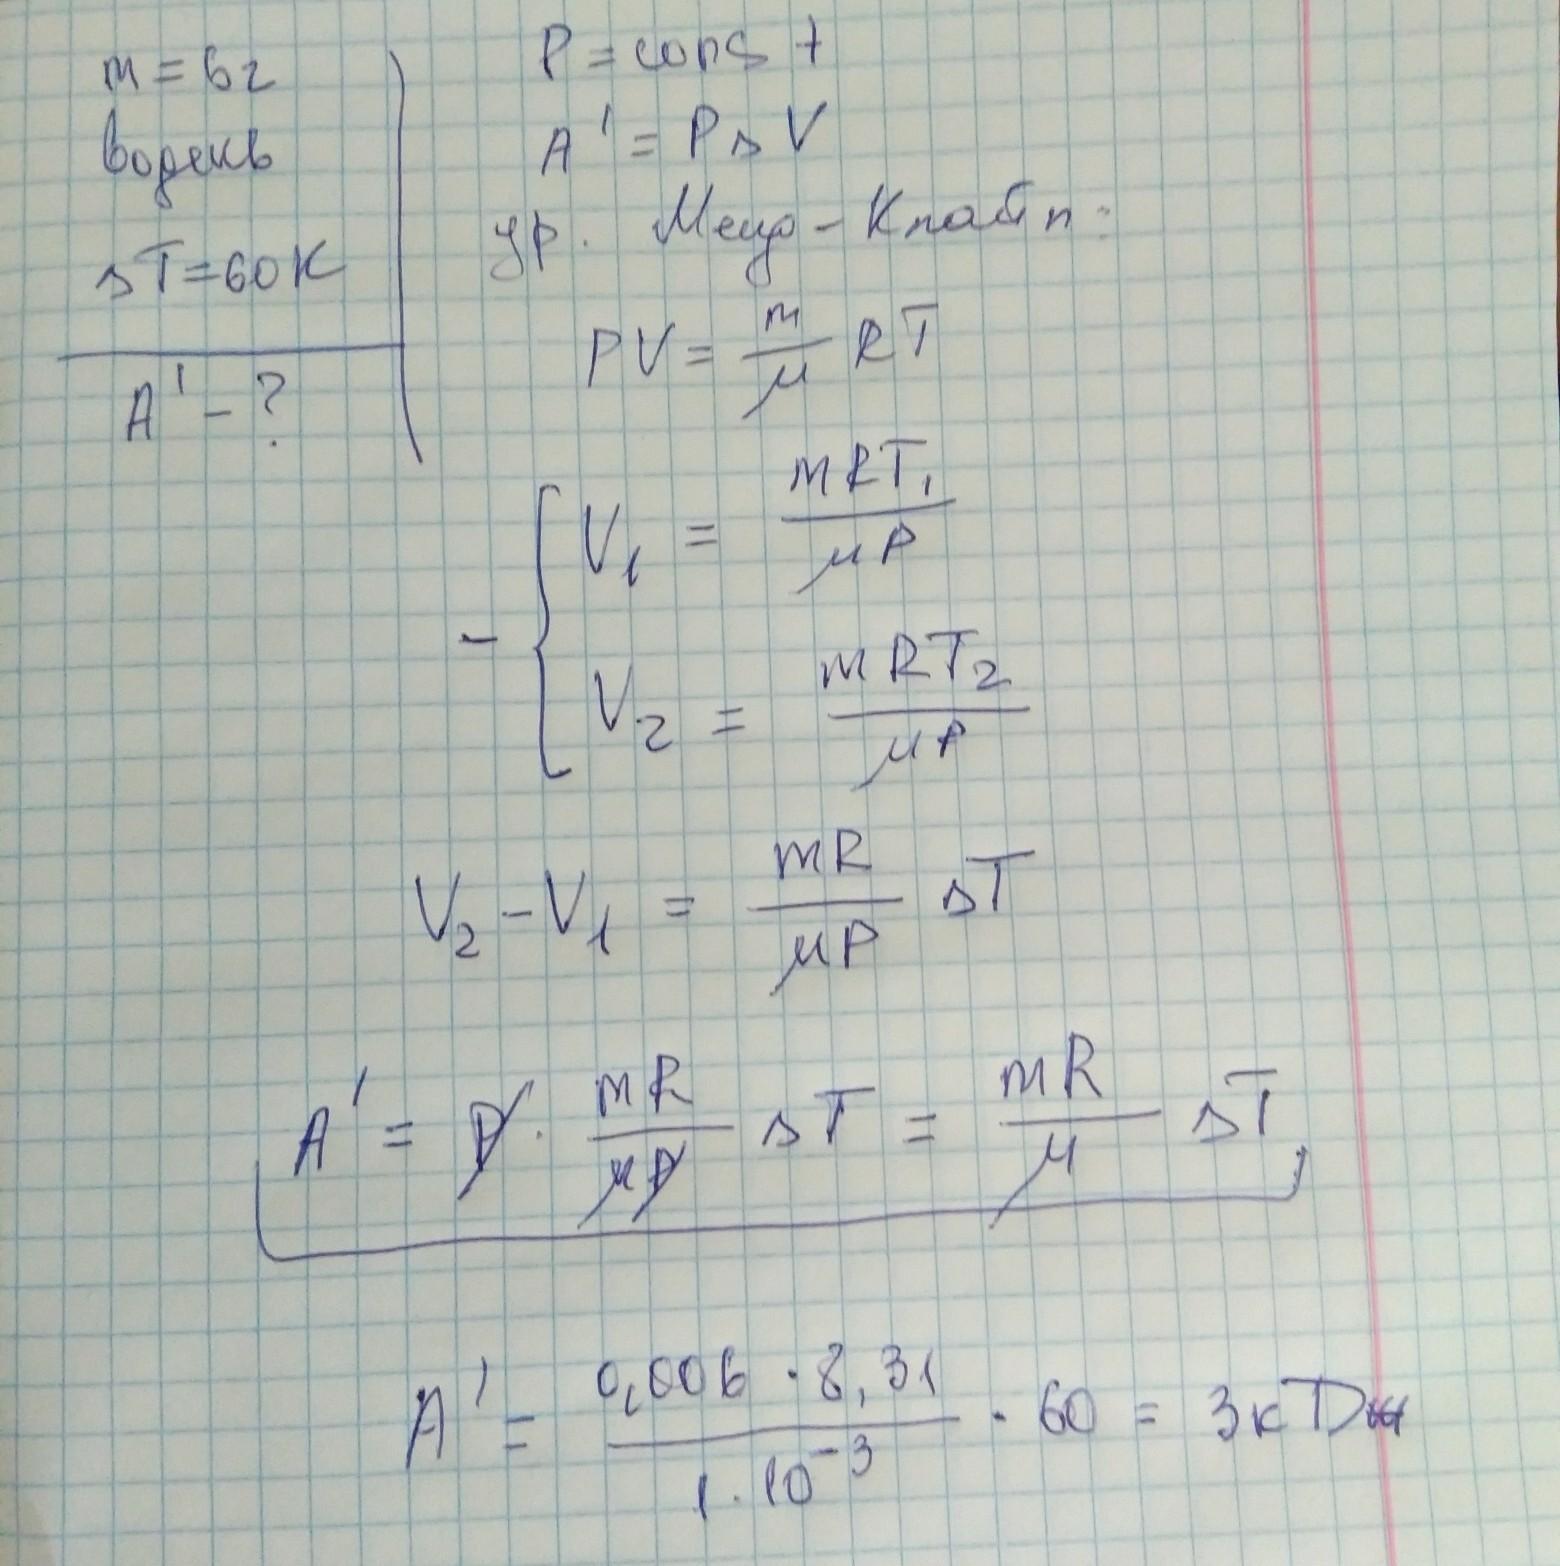 m = 6г
водень
ΔT = 60K
A' - ?
P = const
A' = PΔV
ур. Менд - Клайп:
PV = m/μ RT
- { V₁ = mRT₁/μP
V₂ = mRT₂/μP
V₂ - V₁ = mR/μP ΔT
A' = P · mR/μP ΔT = mR/μ ΔT
A' = 0,006 · 8,31 / 1·10⁻³ · 60 = 3кДж